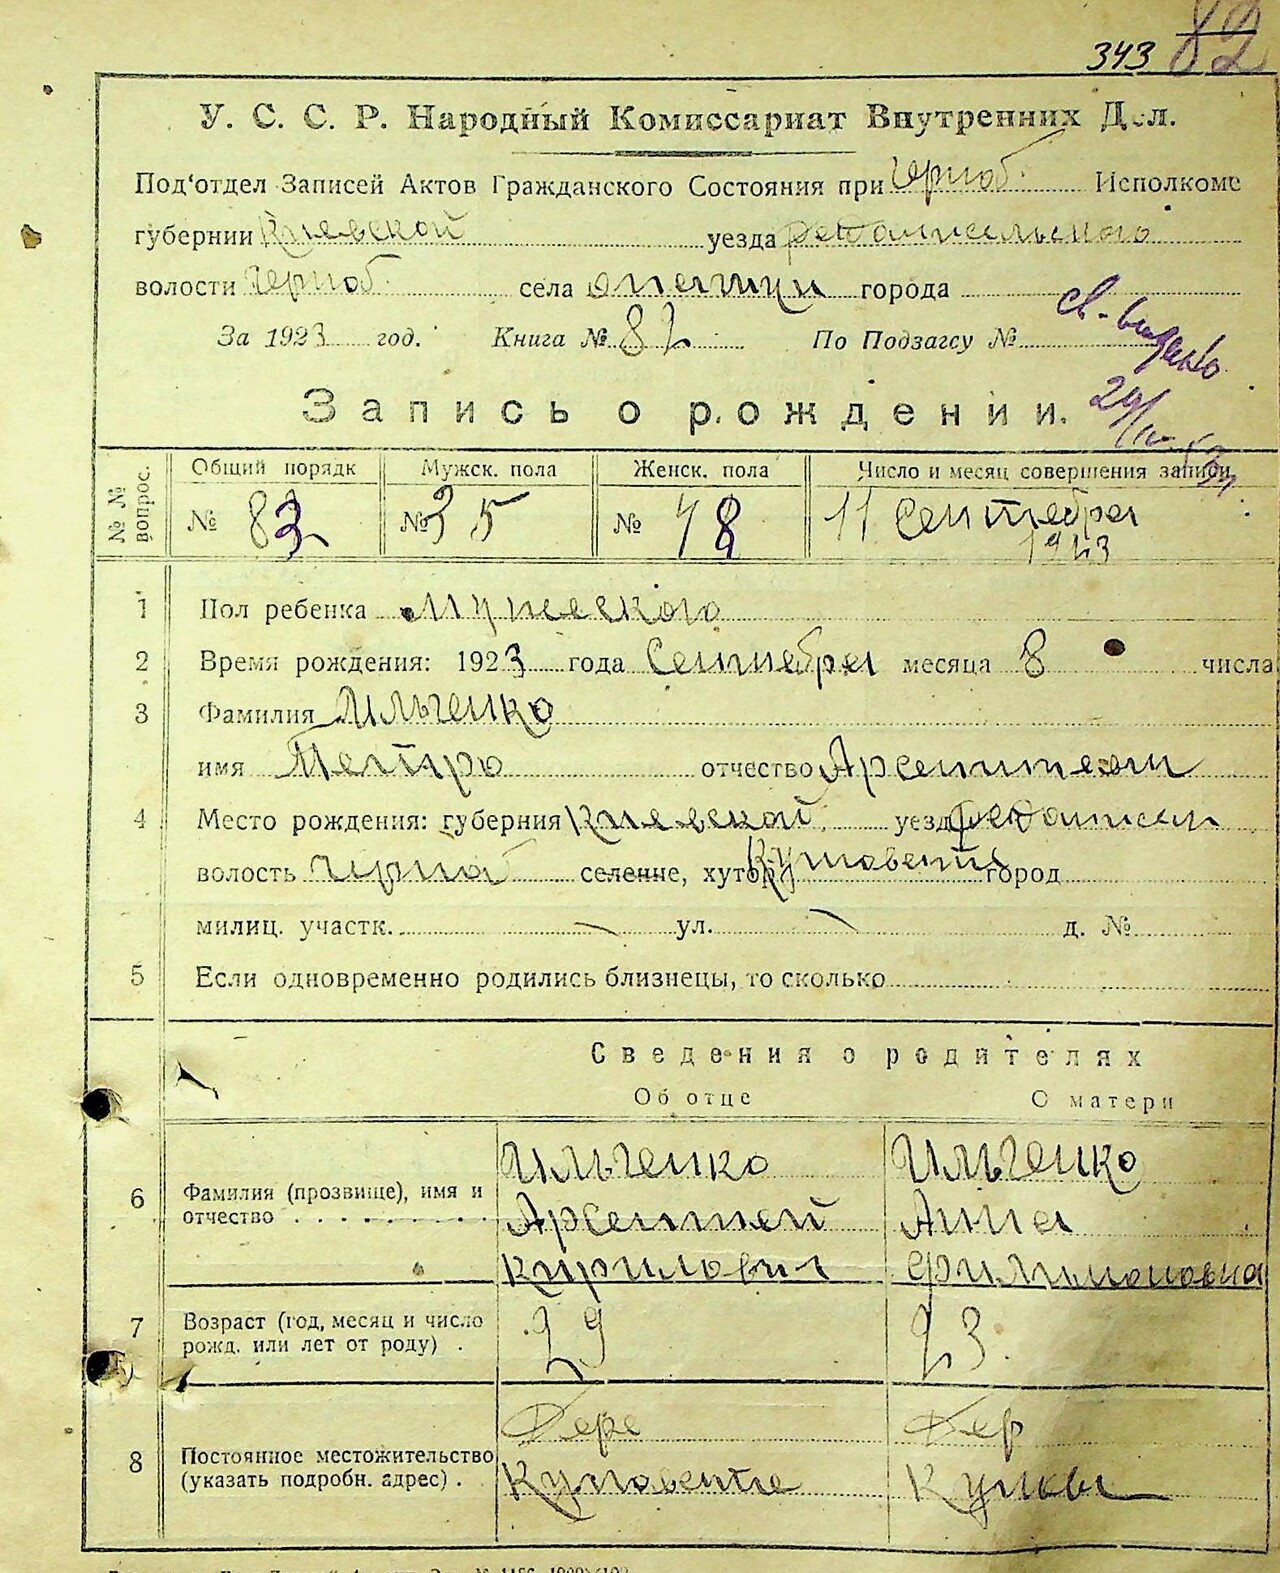 343 82
У. С. С. Р. Народный Комиссариат Внутренних Дел.
Под'отдел Записей Актов Гражданского Состояния при Черноб. Исполкоме
губернии Киевской уезда
волости Черноб. села Опачичи города
За 1923 год. Книга № 82 По Подзагсу №
св-во выдано
Запись о рождении.
№ № вопрос. Общий порядк Мужск. пола Женск. пола Число и месяц совершения записи
№ 83 № 35 № 48 11 Сентября
1923
1 Пол ребенка Мужеского
2 Время рождения: 1923 года Сентября месяца 8 числа
3 Фамилия Ильченко
имя Петро отчество
4 Место рождения: губерния Киевской уезд
волость Черноб селение, хутор город
милиц. участк. — ул. — д. №
5 Если одновременно родились близнецы, то сколько
Сведения о родителях
Об отце О матери
Ильченко Ильченко
6 Фамилия (прозвище), имя и
отчество Арсентей Анна
Кирилович Филимоновна
7 Возраст (год, месяц и число
рожд. или лет от роду) . 29 23.
Дере Дер
8 Постоянное местожительство
(указать подробн. адрес) .